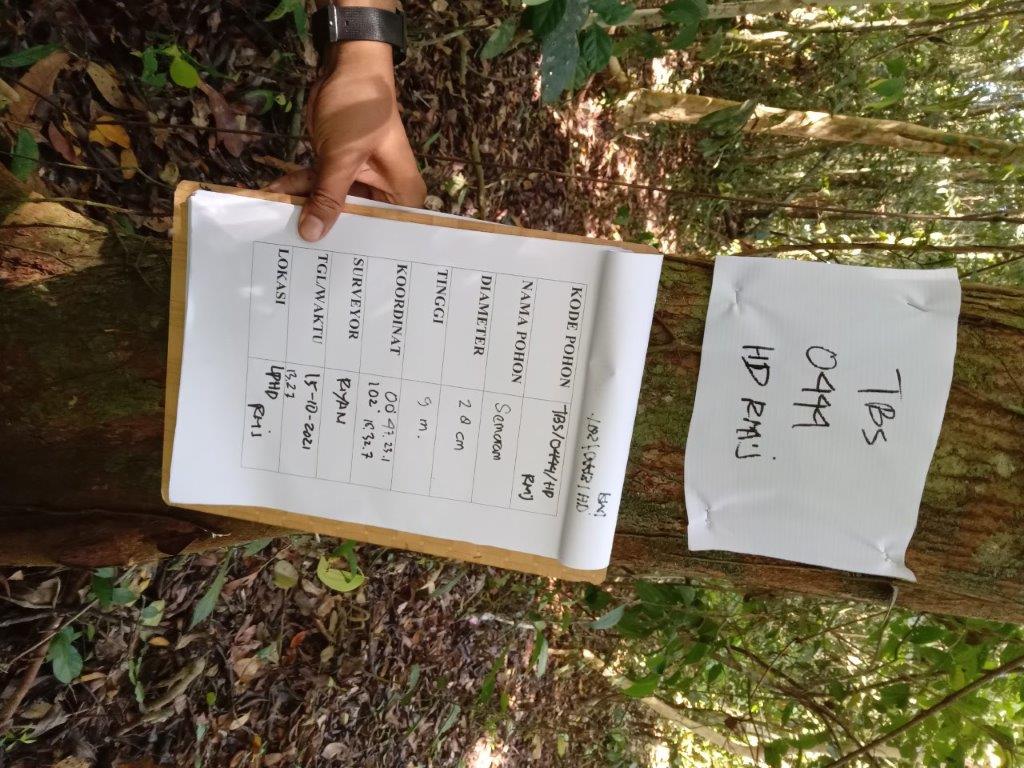 TBS
0444
HD RMJ
KODE POHON TBS/0444/HD
RMJ
NAMA POHON Semaram
DIAMETER 28 cm
TINGGI 9 m.
KOORDINAT 00° 47. 23.1
102° 18. 32. 7
SURVEYOR RIYAN
TGL/WAKTU 15-10-2021
13.27
LOKASI LPHD
RMJ